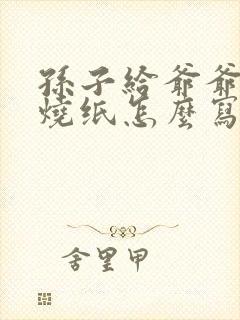 孫子給爺爺
燒纸怎麼寫
舍里甲